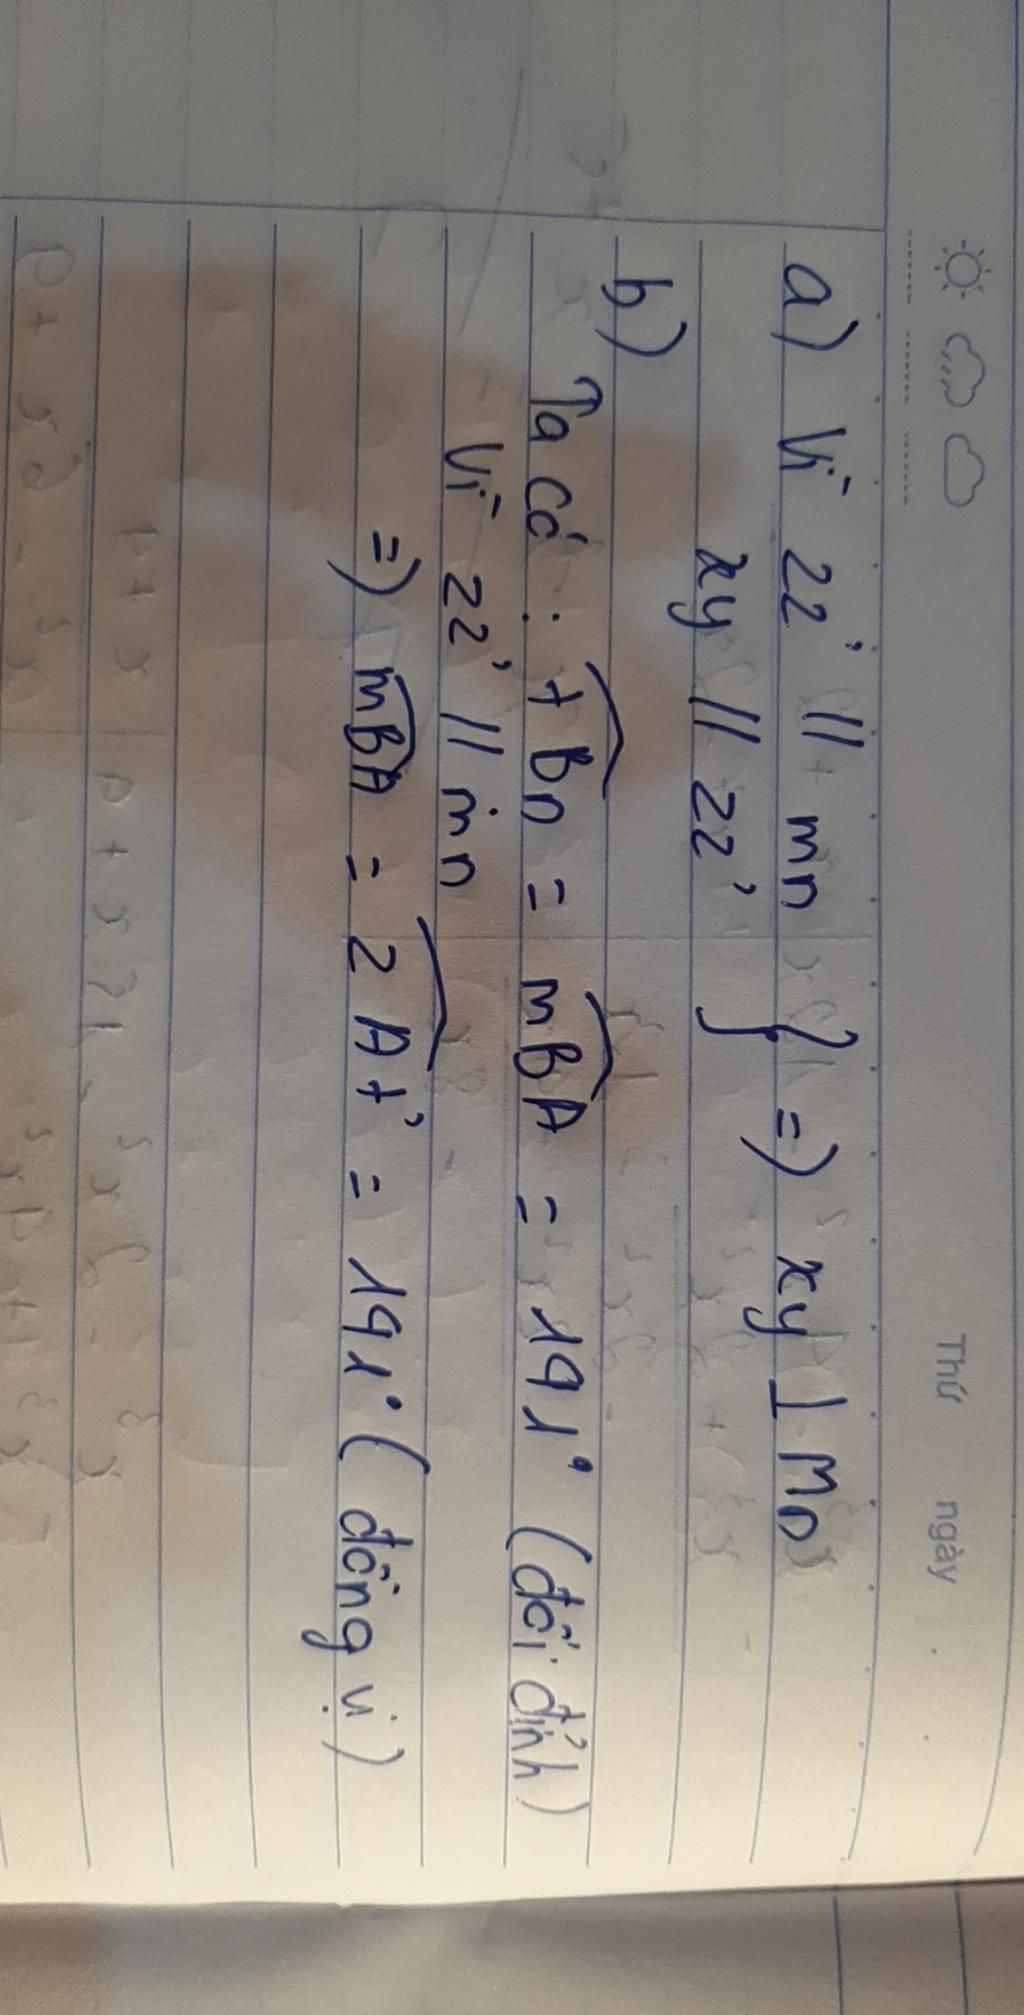 Thứ ngày
a) Vì zz' // mn } => xy ⊥ mn
xy // zz'
b)
Ta có: tBn = mBA = 141° (đối đỉnh)
Vì zz' // mn
=> mBA = zAt' = 141° (đồng vị)